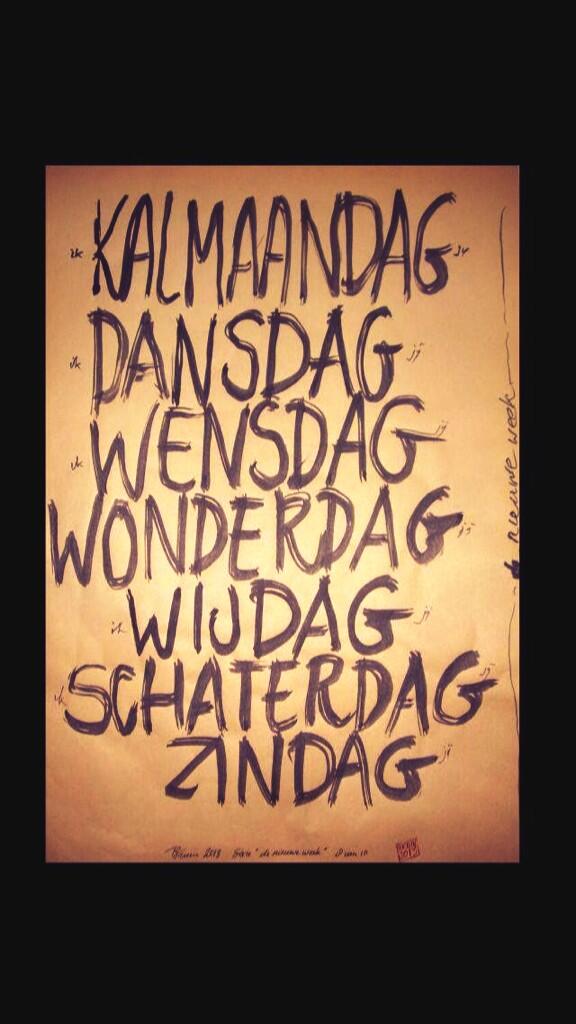 ik KALMAANDAG jy
ik DANSDAG jÿ
ik WENSDAG jÿ
WONDERDAG jÿ
ik WIJDAG jÿ
ik SCHATERDAG jÿ
ZINDAG jÿ
de nieuwe week
2013 Serie "de nieuwe week"